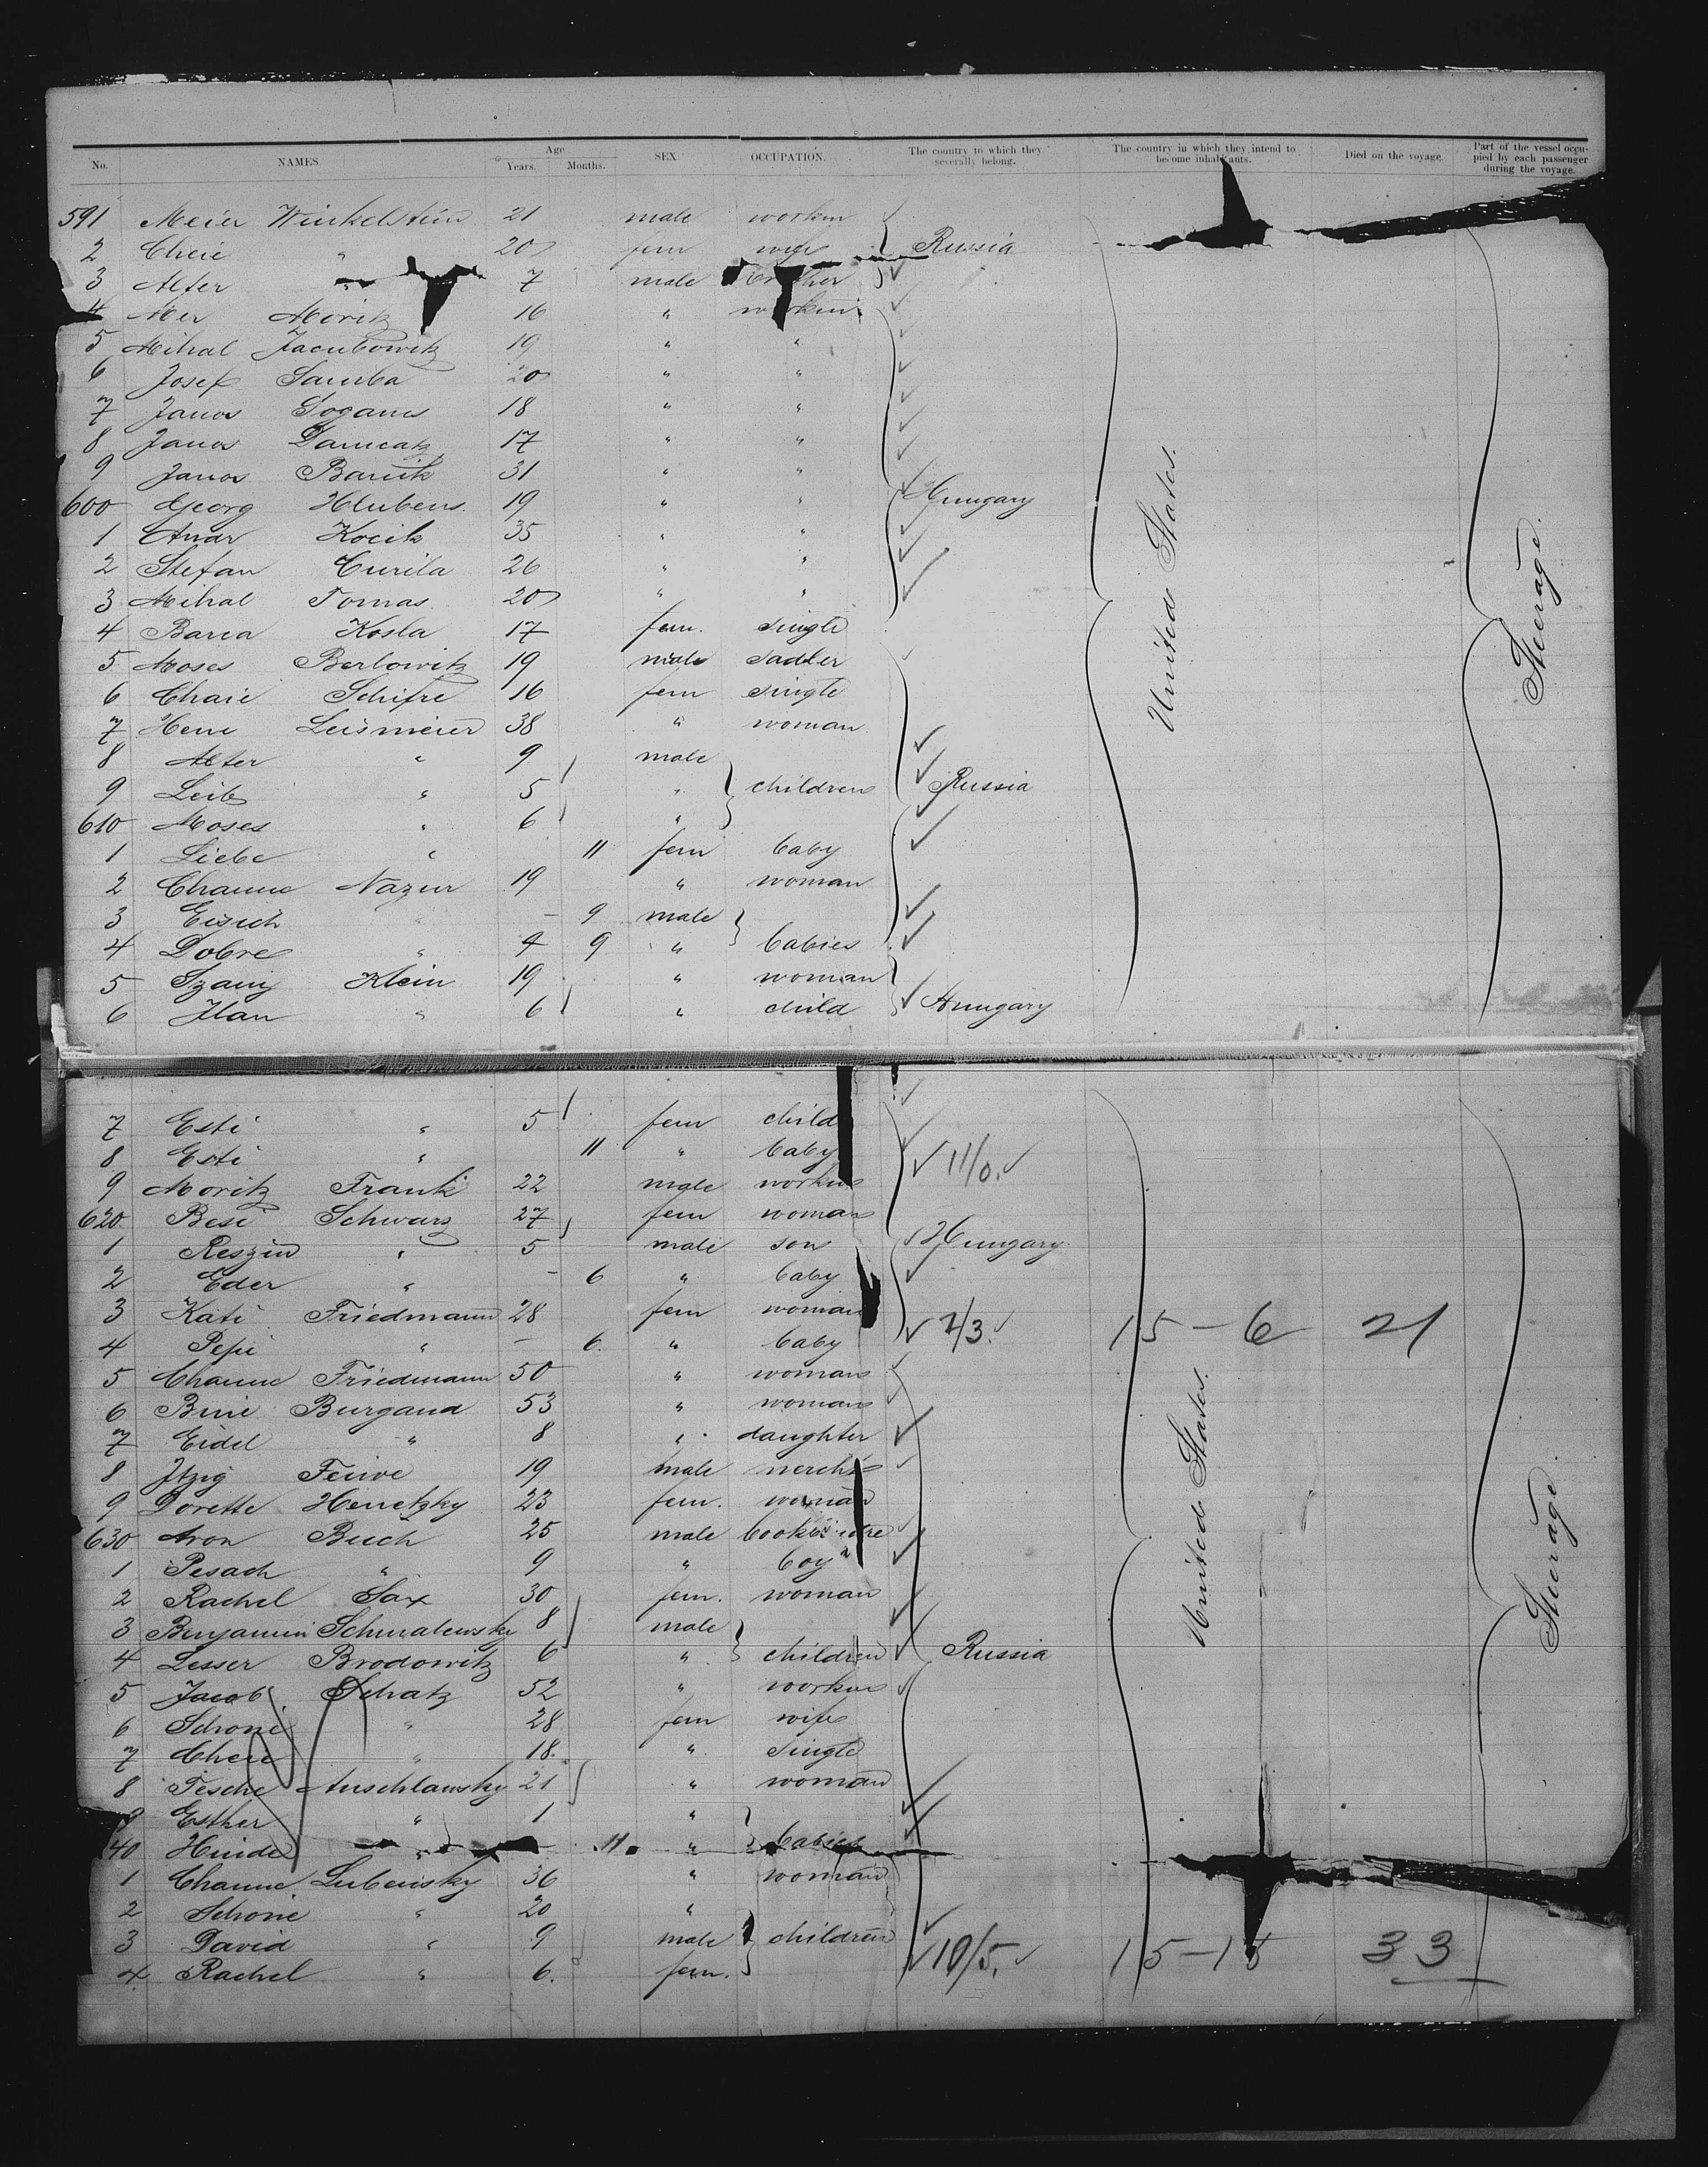 No. NAMES Age Years. Months. SEX. OCCUPATION. The country to which they severally belong. The country in which they intend to become inhabitants. Died on the voyage. Part of the vessel occupied by each passenger during the voyage.
591 Meier Winkelstein 21 male
2 Cheie " 20 fem wife Russia
3 Alter " 7 male brother
4 Mer Moritz 16 "
5 Mihal Jacubowitz 19 " "
6 Josef Samba 20 " "
7 Janos 18 " "
8 Janos 17 " "
9 Janos Banik 31 " "
600 Georg Hlubens 19 " " Hungary
1 Andr Kocik 35 " "
2 Stefan Curila 26 " "
3 Mihal Tomas 20 " "
4 Barca Kosla 17 fem. single
5 Moses Berlowitz 19 male sadler
6 Chaie Schifre 16 fem single
7 Hene Leismeier 38 " woman
8 Alter " 9 male
9 Leib " 5 " children Russia
610 Moses " 6 "
1 Liebe " 11 fem baby
2 Channe Nazur 19 " woman
3 Eisich " - 9 male
4 Dobre " 4 9 " babies
5 Klein 19 " woman
6 " 6 " child Hungary
7 Esti " 5 fem child
8 Esti " 11 " baby 11/0.
9 Moritz Frank 22 male
620 Besi Schwarz 27 fem woman
1 Reszin " 5 male son Hungary
2 Eder " - 6 " baby
3 Kati Friedmann 28 fem woman
4 Pepi " - 6. " baby 2/3. 15-6 21
5 Channe Friedmann 50 " woman
6 Bine Burgand 53 " woman
7 Eidel " 8 " daughter
8 Itzig Feiwe 19 male
9 Dorette Henetzky 23 fem. woman
630 Aron Buch 25 male
1 Pesach " 9 " boy
2 Rachel Sax 30 fem. woman
3 Benjamin Schmalewsky 8 male
4 Lesser Brodowitz 6 " children Russia
5 Jacob Schatz 52 "
6 Schone " 28 fem wife
7 Cheie " 18. " single
8 Tesche Anschlawsky 21 " woman
9 Esther " 1 "
40 Hinde " - 11 " babies
1 Channe Lubensky 36 " woman
2 Schone " 20 "
3 David " 9 male children
4 Rachel " 6. fem. 10/5. 15-18 33
United States.
Steerage.
United States.
Steerage.